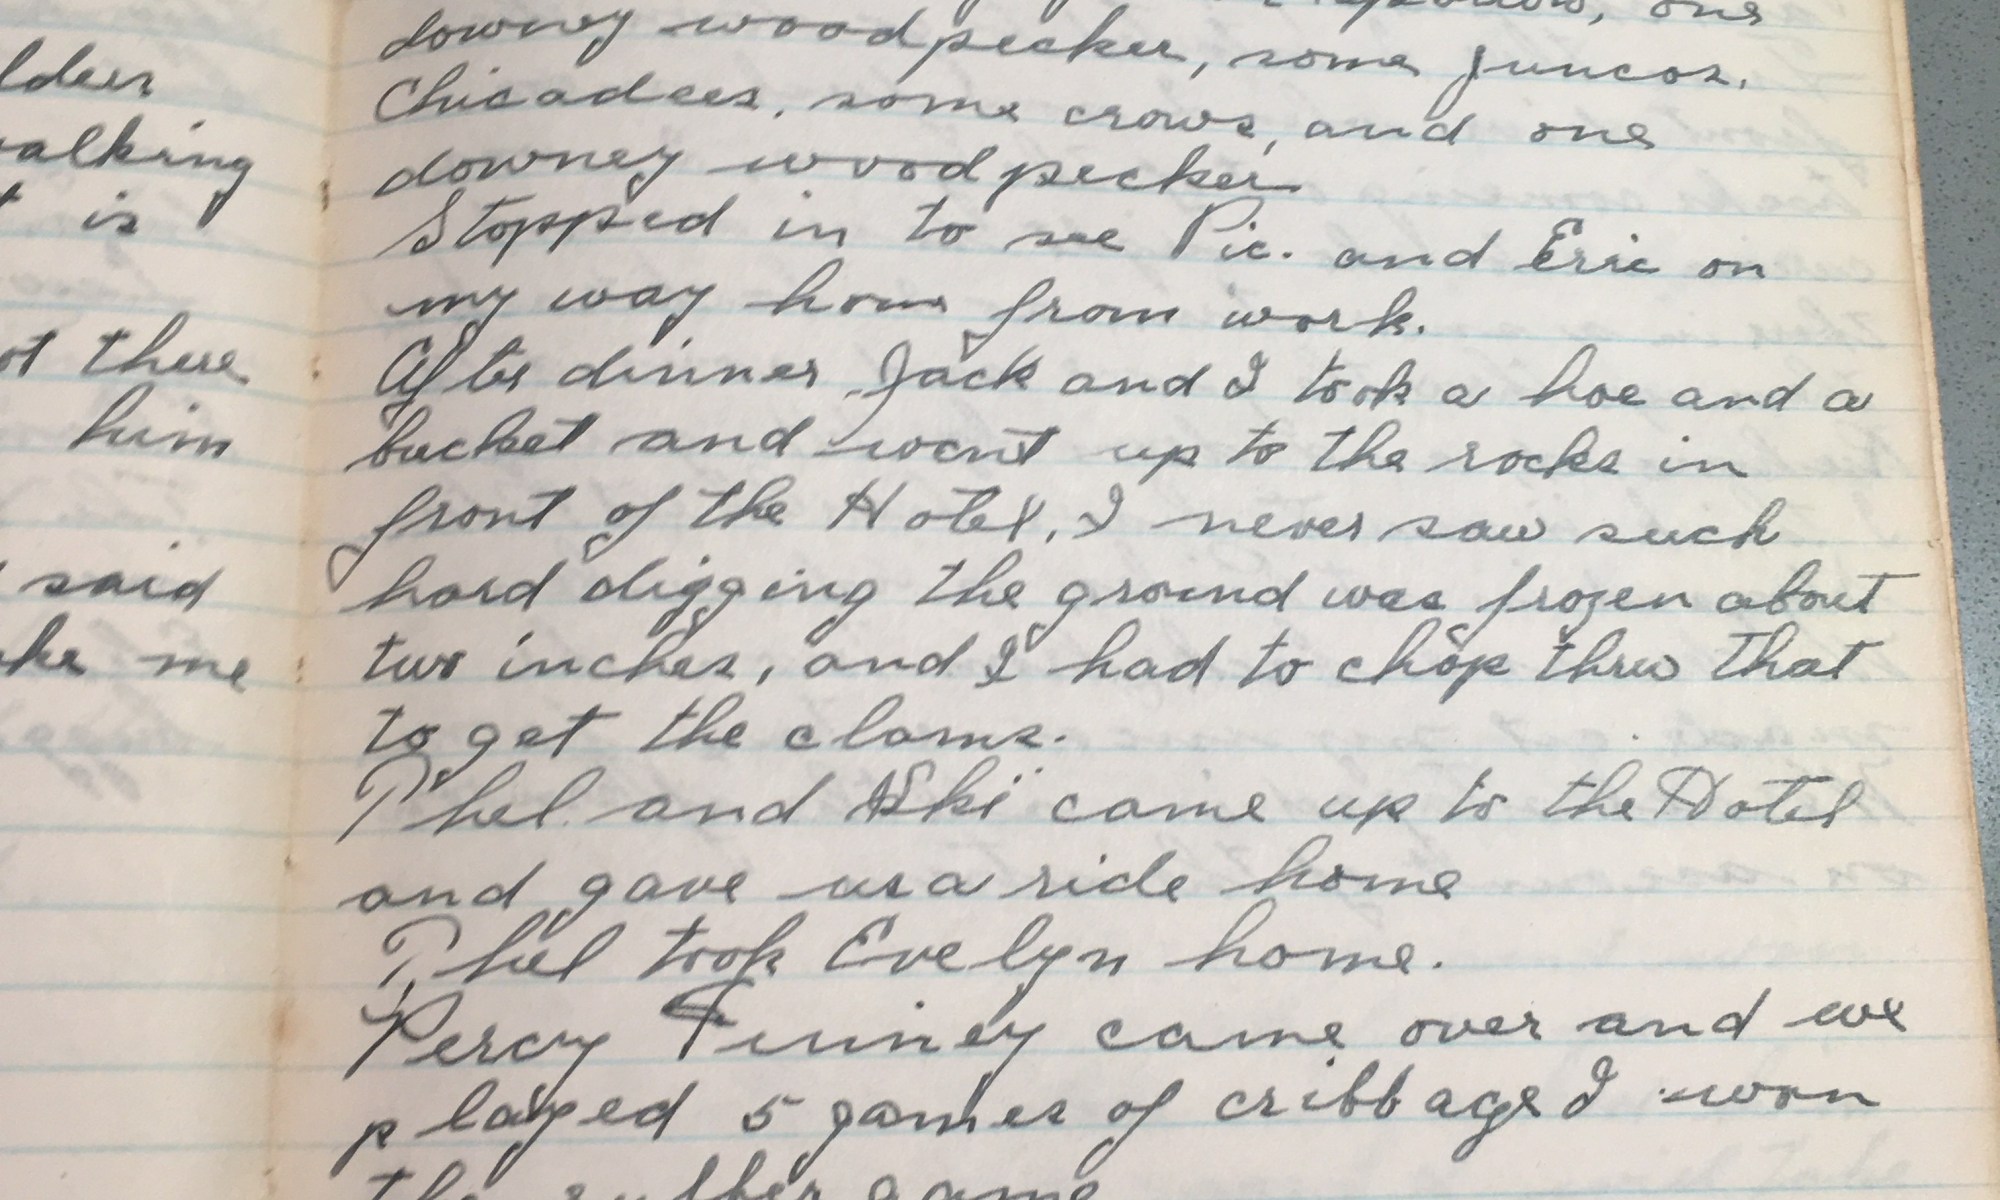 lder
walking
is
there
him
said
me
sparrow, one
downey woodpecker, some juncos,
Chicadees, some crows, and one
downey woodpecker
Stopped in to see Pic. and Eric on
my way home from work.
After dinner Jack and I took a hoe and a
bucket and went up to the rocks in
front of the Hotel, I never saw such
hard digging the ground was frozen about
two inches, and I had to chop thru that
to get the clams.
Phel. and Ski came up to the Hotel
and gave us a ride home
Phel took Evelyn home.
Percy Tinney came over and we
played 5 games of cribbage I won
the rubber game